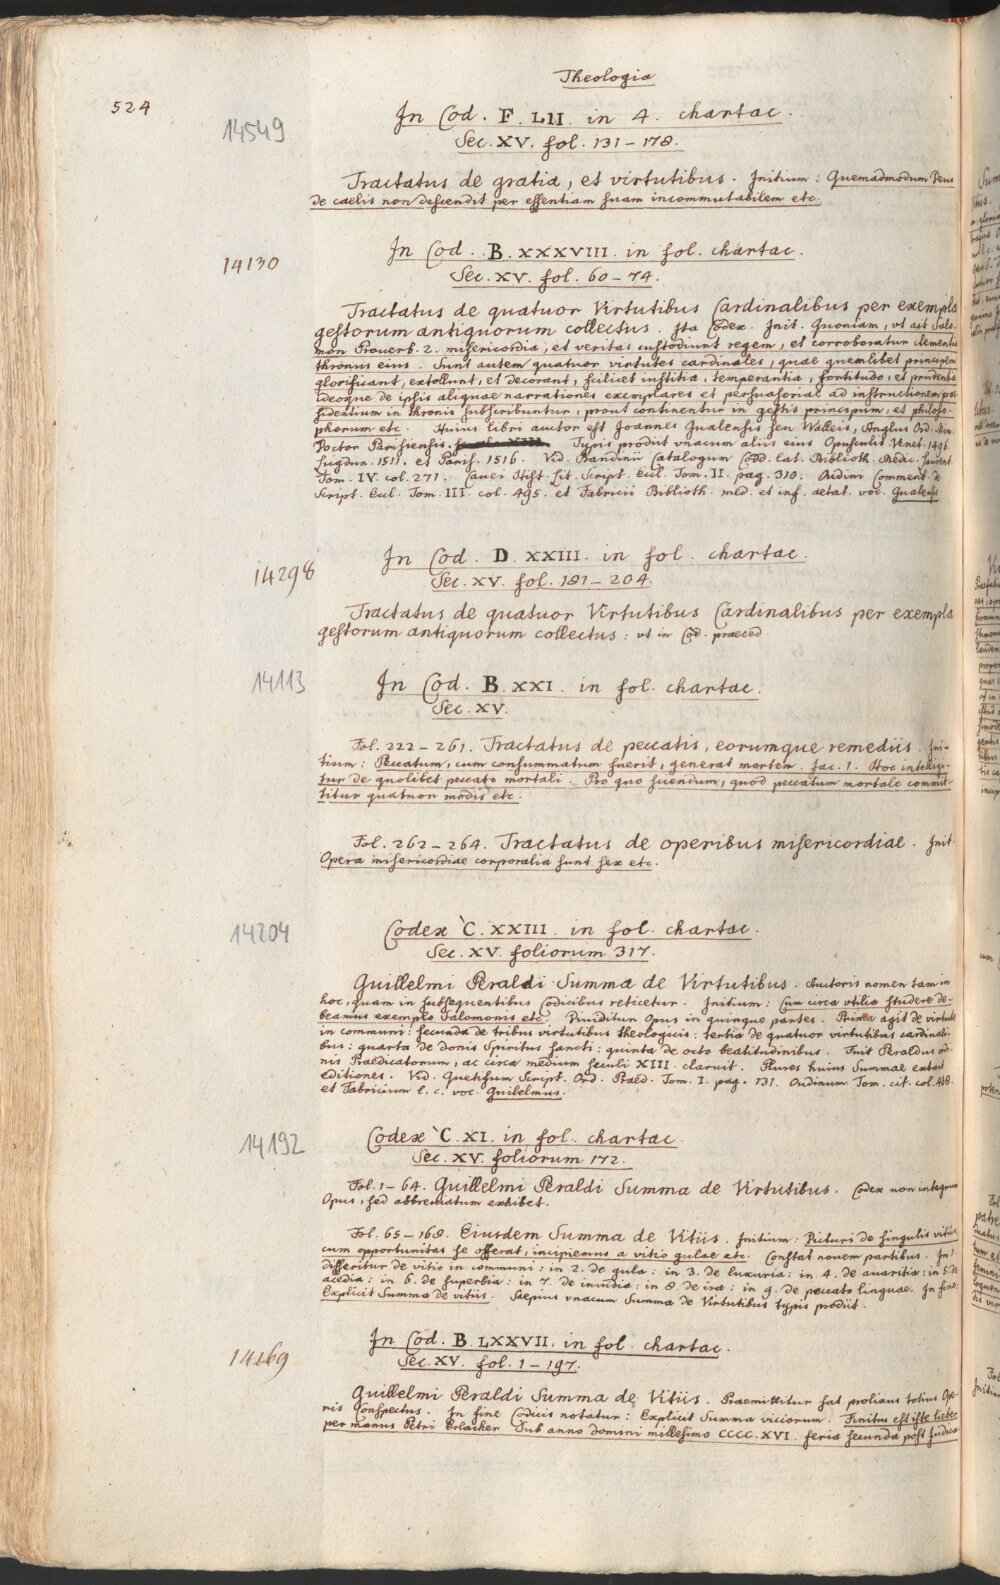 Theologia
524
14549
In Cod. F. LII. in 4. chartac.
Sec. XV. fol. 131–178.
Tractatus de gratia, et virtutibus. Initium: Quemadmodum Deus
de caelis non descendit per essentiam suam incommutabilem etc.
14130
In Cod. B. XXXVIII. in fol. chartac.
Sec. XV. fol. 60–74.
Tractatus de quatuor Virtutibus Cardinalibus per exempla
gestorum antiquorum collectus. Ita Codex. Init. Quoniam, vt ait Salo-
mon Prouerb. 2. misericordia, et veritas custodiunt regem, et corroboratur clementia
thronus eius. Sunt autem quatuor virtutes cardinales, quae quemlibet principem
glorificant, extollunt, et decorant, scilicet iustitia, temperantia, fortitudo, et prudentia
ideoque de ipsis aliquae narrationes exemplares et persuasoriae ad instructionem prae-
sidentium in thronis subscribuntur, prout continentur in gestis principum, et philoso-
phorum etc. Huius libri auctor est Joannes Gualensis seu Walleis, Anglus Ord. Min.
Doctor Parisiensis. Typis prodiit vnacum aliis eius Opusculis Venet. 1496.
Lugdun. 1511. et Paris. 1516. Vid. Bandinii Catalogum Codd. Lat. Biblioth. Medic. Laurent.
Tom. IV. col. 271. Cauei Hist. Lit. Script. Eccl. Tom. II. pag. 310. Oudini Comment. de
Script. Eccl. Tom. III. col. 495. et Fabricii Biblioth. med. et inf. aetat. voc. Gualensis
14298
In Cod. D. XXIII. in fol. chartac.
Sec. XV. fol. 181–204.
Tractatus de quatuor Virtutibus Cardinalibus per exempla
gestorum antiquorum collectus: vt in Cod. praeced.
14113
In Cod. B. XXI. in fol. chartac.
Sec. XV.
Fol. 222–261. Tractatus de peccatis, eorumque remediis. Ini-
tium: Peccatum, cum consummatum fuerit, generat mortem. Jac. 1. Hoc intelligi-
tur de quolibet peccato mortali. Pro quo sciendum, quod peccatum mortale commit-
titur quatuor modis etc.
Fol. 262–264. Tractatus de operibus misericordiae. Init.
Opera misericordiae corporalia sunt sex etc.
14204
Codex C. XXIII. in fol. chartac.
Sec. XV. foliorum 317.
Guillelmi Peraldi Summa de Virtutibus. Auctoris nomen tam in
hoc, quam in subsequentibus Codicibus reticetur. Initium: Cum circa vtilia studere de-
beamus exemplo Salomonis etc. Diuiditur Opus in quinque partes. Prima agit de virtute
in communi: secunda de tribus virtutibus theologicis: tertia de quatuor virtutibus cardinali-
bus: quarta de donis Spiritus sancti: quinta de octo beatitudinibus. Fuit Peraldus ordi-
nis Praedicatorum, ac circa medium seculi XIII. claruit. Plures huius Summae extant
editiones. Vid. Quetifum Script. Ord. Praed. Tom. I. pag. 131. Oudinum Tom. cit. col. 468.
et Fabricium l. c. voc. Guilelmus.
14192
Codex C. XI. in fol. chartac.
Sec. XV. foliorum 172.
Fol. 1–64. Guillelmi Peraldi Summa de Virtutibus. Codex non integrum
Opus, sed abbreuiatum exhibet.
Fol. 65–168. Eiusdem Summa de Vitiis. Initium: Dicturi de singulis vitiis
cum opportunitas se offerat, incipiemus a vitio gulae etc. Constat nouem partibus. In 1.
disseritur de vitio in communi: in 2. de gula: in 3. de luxuria: in 4. de auaritia: in 5. de
acedia: in 6. de superbia: in 7. de inuidia: in 8. de ira: in 9. de peccato linguae. In fine:
Explicit Summa de vitiis. Saepius vnacum Summa de Virtutibus typis prodiit.
14269
In Cod. B. LXXVII. in fol. chartac.
Sec. XV. fol. 1–197.
Guillelmi Peraldi Summa de Vitiis. Praemittitur sat prolixus totius Ope-
ris Conspectus. In fine Codicis notatur: Explicit Summa viciorum. Finitus est iste liber
per manus Petri Erlacher Sub anno domini millesimo CCCC. XVI. feria secunda post Judica